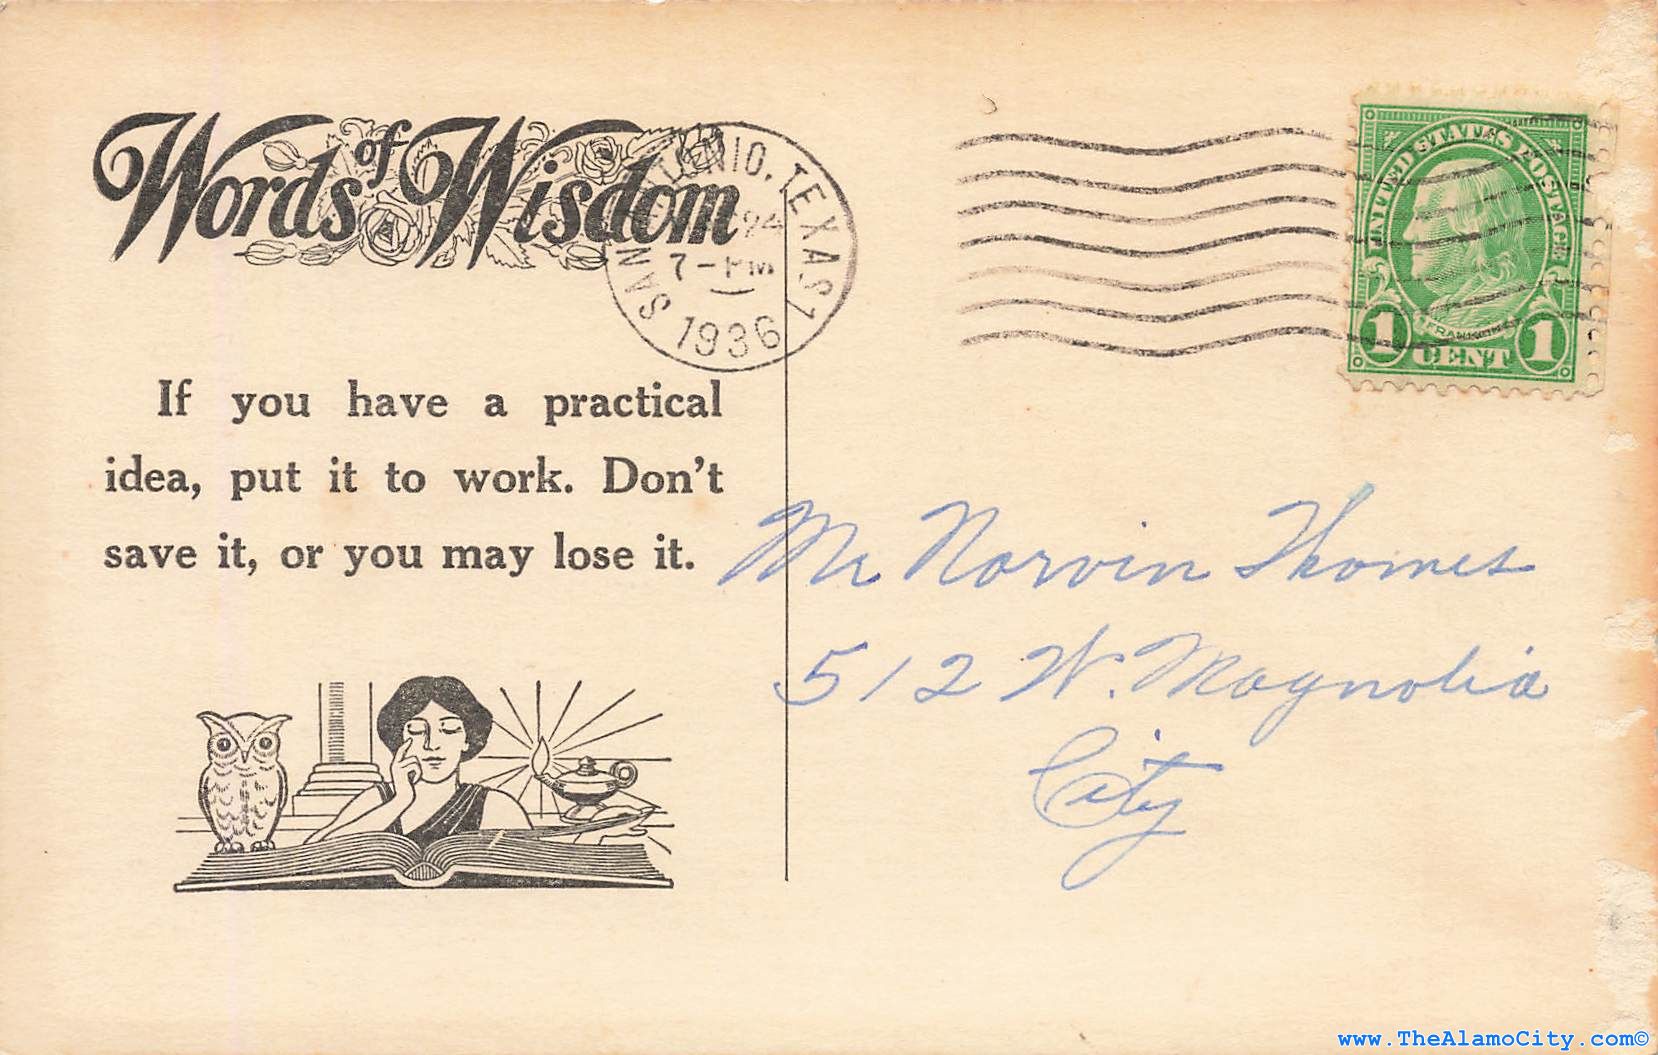 Words of Wisdom
SAN ANTONIO, TEXAS 1
24
7-PM
1936
UNITED STATES POSTAGE
FRANKLIN
1 CENT 1
If you have a practical
idea, put it to work. Don't
save it, or you may lose it.
Mr Norvin Thomes
512 W. Magnolia
City
www.TheAlamoCity.com©